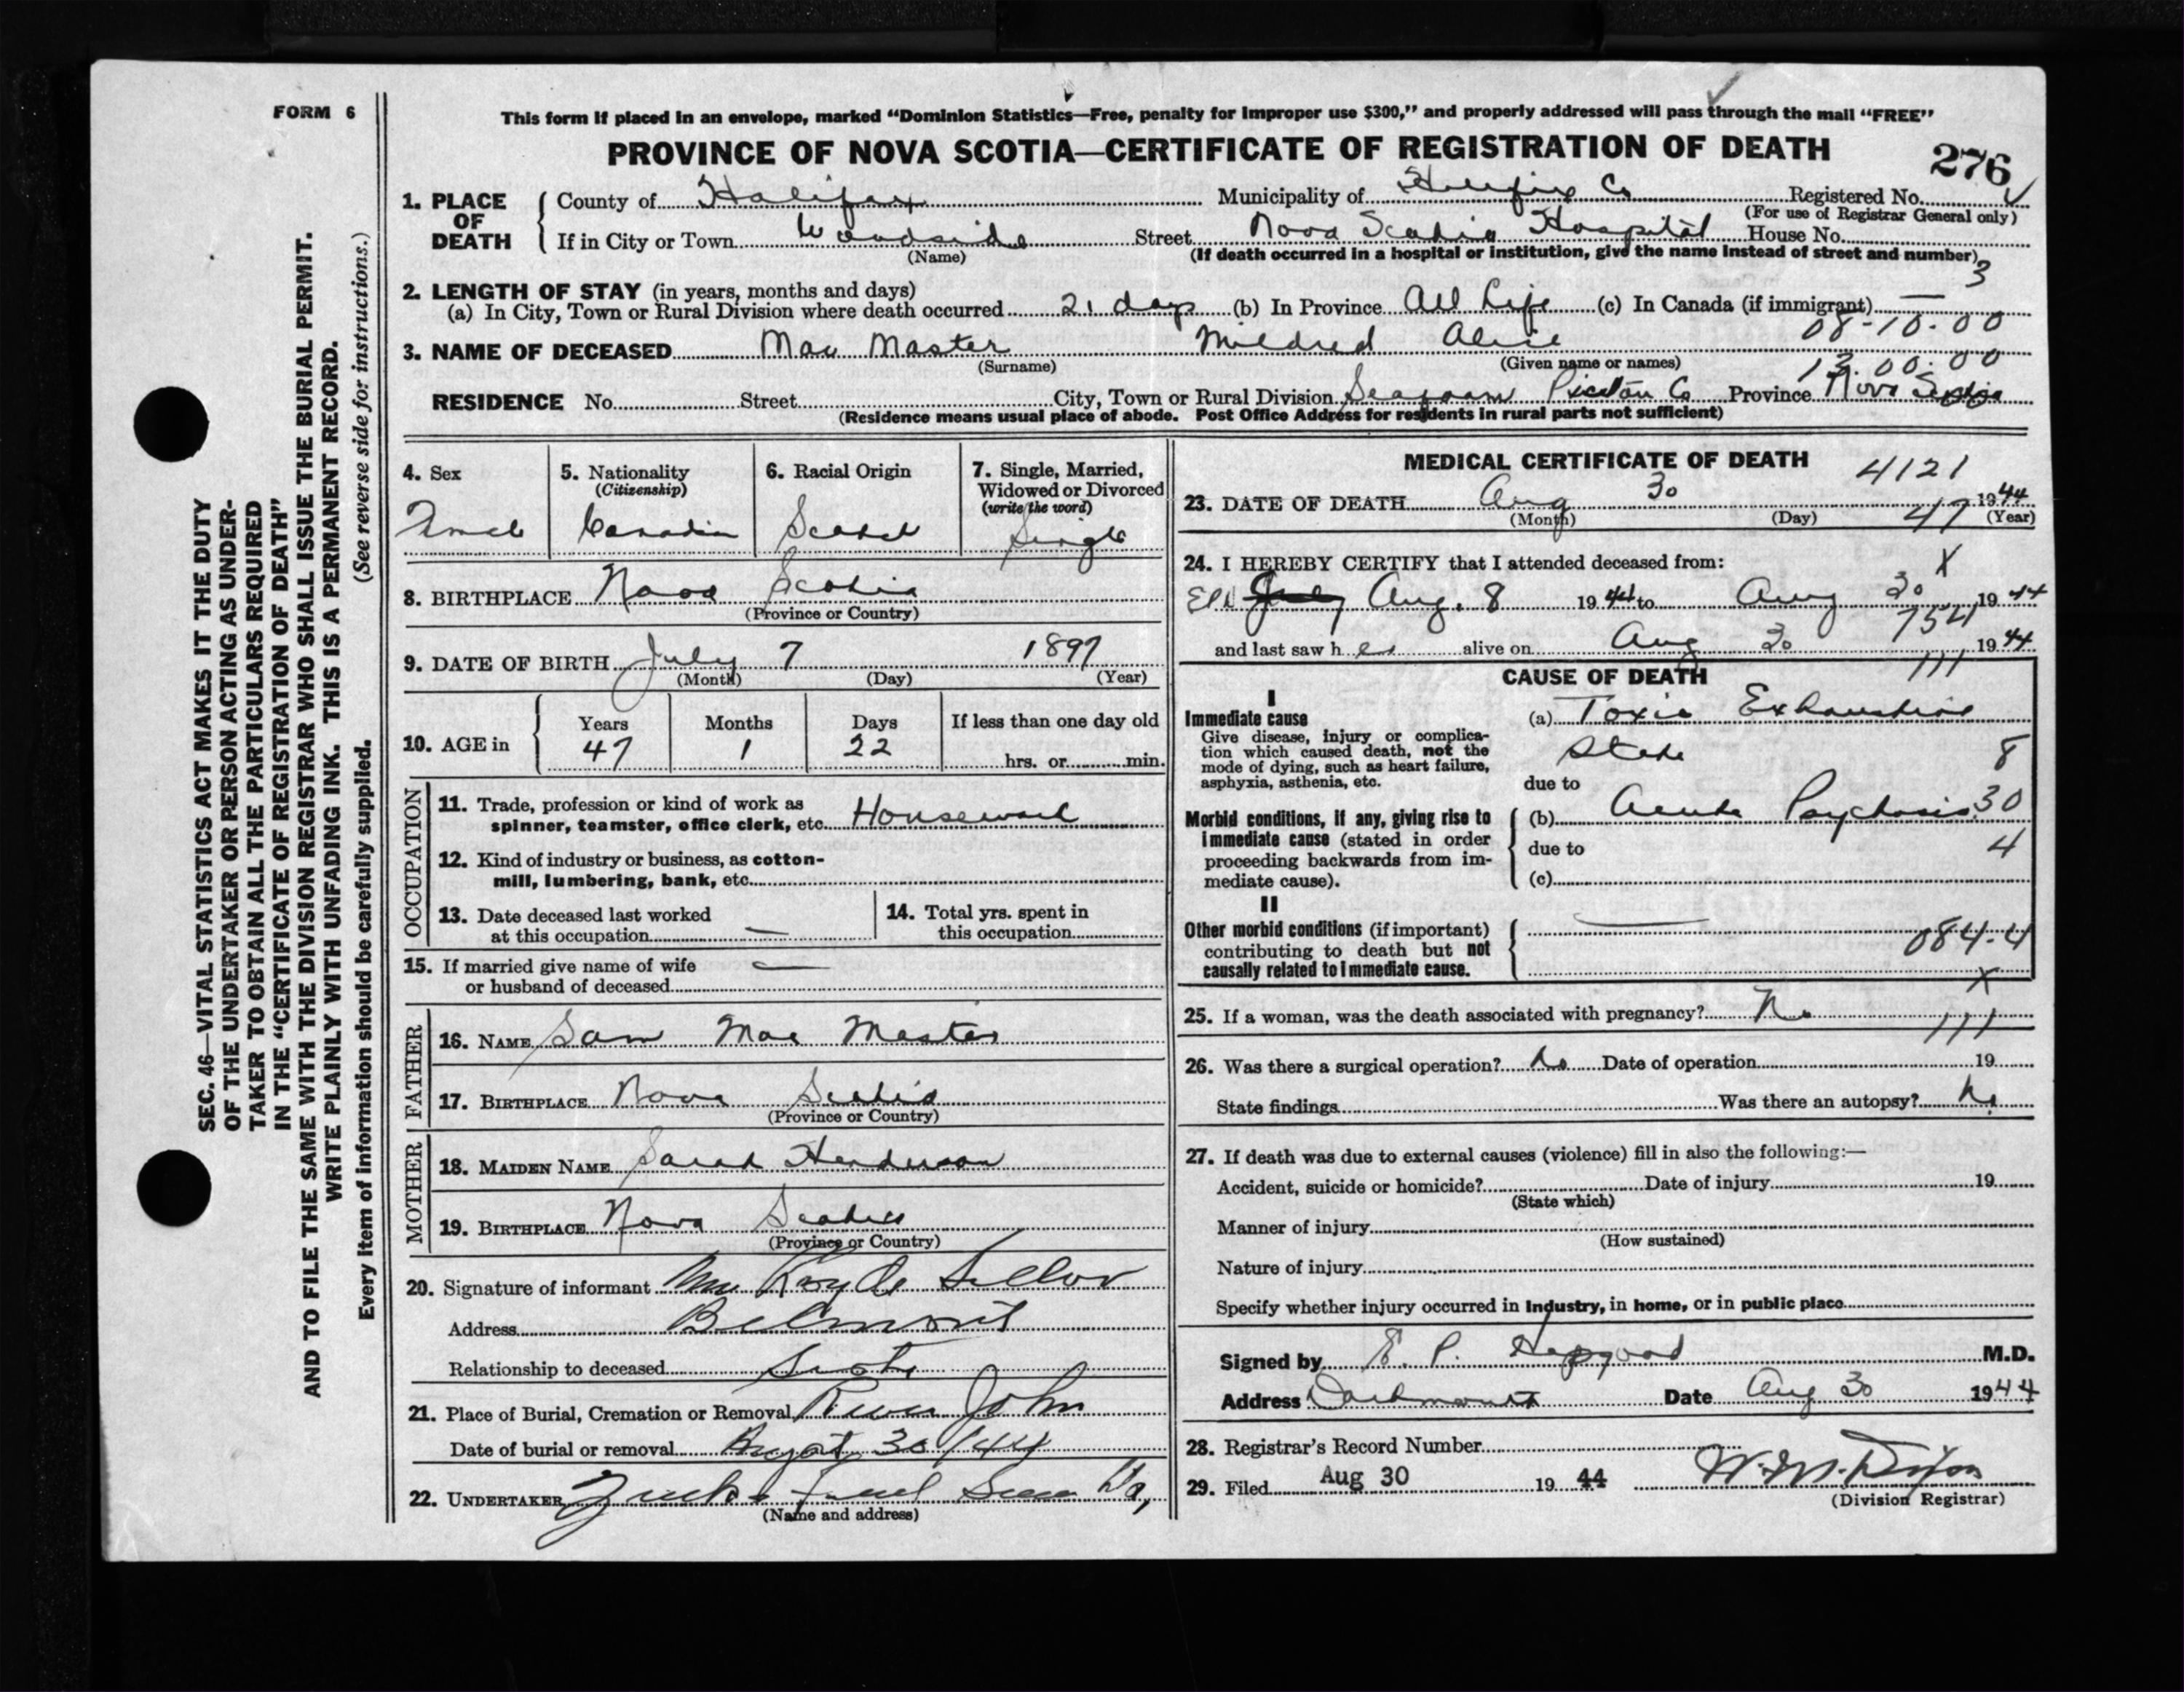 FORM 6
This form if placed in an envelope, marked "Dominion Statistics—Free, penalty for improper use $300," and properly addressed will pass through the mail "FREE"
PROVINCE OF NOVA SCOTIA—CERTIFICATE OF REGISTRATION OF DEATH
276
SEC. 46—VITAL STATISTICS ACT MAKES IT THE DUTY
OF THE UNDERTAKER OR PERSON ACTING AS UNDER-
TAKER TO OBTAIN ALL THE PARTICULARS REQUIRED
IN THE "CERTIFICATE OF REGISTRATION OF DEATH"
AND TO FILE THE SAME WITH THE DIVISION REGISTRAR WHO SHALL ISSUE THE BURIAL PERMIT.
WRITE PLAINLY WITH UNFADING INK. THIS IS A PERMANENT RECORD.
Every item of information should be carefully supplied. (See reverse side for instructions.)
1. PLACE OF DEATH County of Halifax Municipality of Halifax Co Registered No.
(For use of Registrar General only)
If in City or Town Woodside Street Nova Scotia Hospital House No.
(Name) (If death occurred in a hospital or institution, give the name instead of street and number)
3
2. LENGTH OF STAY (in years, months and days)
(a) In City, Town or Rural Division where death occurred 21 days (b) In Province All Life (c) In Canada (if immigrant) —
08-10-00
3. NAME OF DECEASED Mac Master Mildred Alice
(Surname) (Given name or names)
13.00.00
RESIDENCE No. Street City, Town or Rural Division Pictou Co Province Nova Scotia
(Residence means usual place of abode. Post Office Address for residents in rural parts not sufficient)
4. Sex 5. Nationality 6. Racial Origin 7. Single, Married,
(Citizenship) Widowed or Divorced
(write the word)
Female Canadian Scotch Single
8. BIRTHPLACE Nova Scotia
(Province or Country)
9. DATE OF BIRTH July 7 1897
(Month) (Day) (Year)
10. AGE in Years Months Days If less than one day old
47 1 22 hrs. or min.
OCCUPATION
11. Trade, profession or kind of work as
spinner, teamster, office clerk, etc. Housework
12. Kind of industry or business, as cotton-
mill, lumbering, bank, etc.
13. Date deceased last worked
at this occupation —
14. Total yrs. spent in
this occupation
15. If married give name of wife —
or husband of deceased
FATHER
16. NAME Sam Mac Master
17. BIRTHPLACE Nova Scotia
(Province or Country)
MOTHER
18. MAIDEN NAME Sarah Henderson
19. BIRTHPLACE Nova Scotia
(Province or Country)
20. Signature of informant
Address Belmont
Relationship to deceased
21. Place of Burial, Cremation or Removal River John
Date of burial or removal 30/44
22. UNDERTAKER
(Name and address)
MEDICAL CERTIFICATE OF DEATH
4121
23. DATE OF DEATH Aug 30 1944
(Month) (Day) (Year)
47
24. I HEREBY CERTIFY that I attended deceased from: X
EPH July Aug. 8 1944 to Aug 30 1944
754
and last saw her alive on Aug 30 1944
CAUSE OF DEATH 111
I
Immediate cause (a) Toxic Exhaustive
Give disease, injury or complica-
tion which caused death, not the State
mode of dying, such as heart failure, 8
asphyxia, asthenia, etc. due to
Morbid conditions, if any, giving rise to (b) Acute Psychosis 30
immediate cause (stated in order
proceeding backwards from im- due to 4
mediate cause). (c)
II
Other morbid conditions (if important) —
contributing to death but not 084-4
causally related to immediate cause.
X
25. If a woman, was the death associated with pregnancy? No
111
26. Was there a surgical operation? No Date of operation 19
State findings Was there an autopsy? No
27. If death was due to external causes (violence) fill in also the following:—
Accident, suicide or homicide? Date of injury 19
(State which)
Manner of injury
(How sustained)
Nature of injury
Specify whether injury occurred in industry, in home, or in public place
Signed by E. P. Hapgood M.D.
Address Dartmouth Date Aug 30 1944
28. Registrar's Record Number
29. Filed Aug 30 19 44 W. M. Dixon
(Division Registrar)